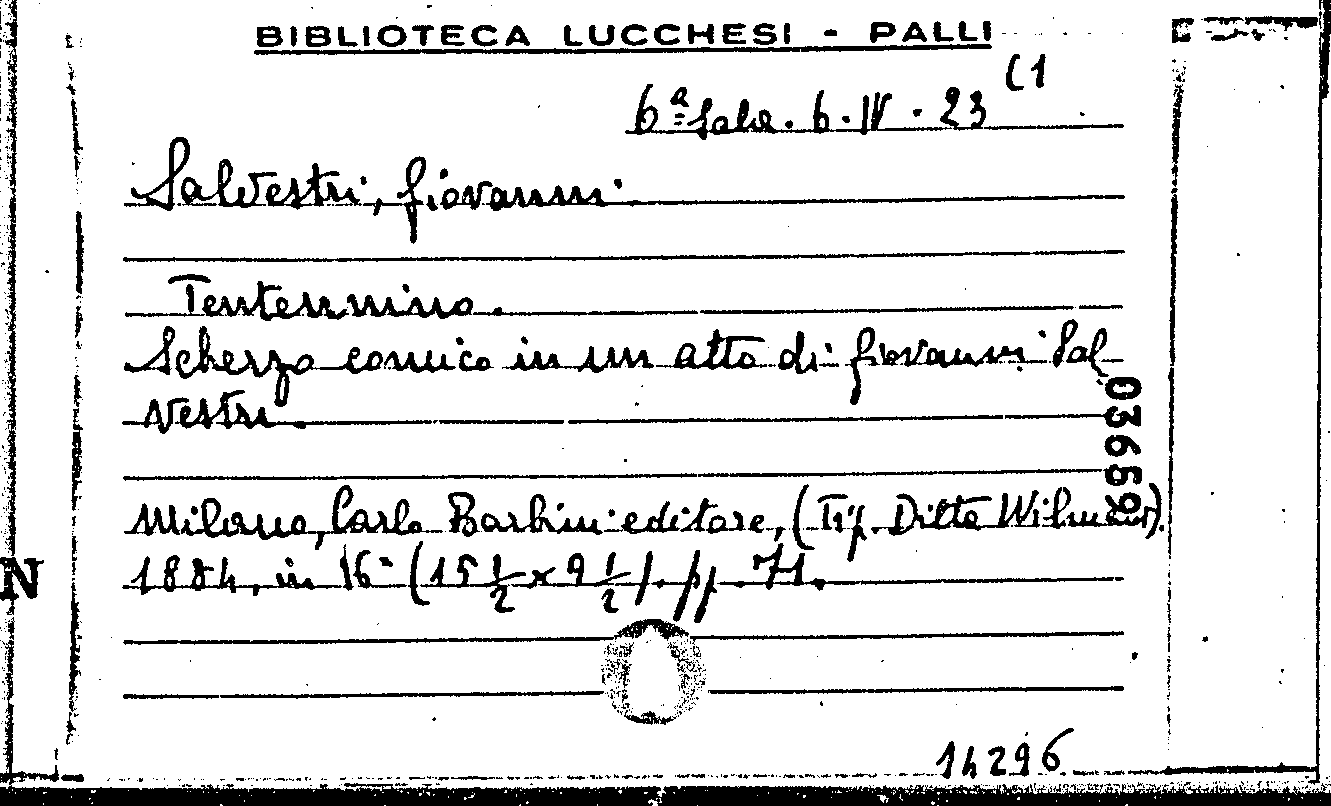 BIBLIOTECA LUCCHESI - PALLI
6ª Sala. 6. IV. 23 (1
Salvestri, Giovanni.
Tentennino.
Scherzo comico in un atto di Giovanni Sal
vestri.
Milano, Carlo Barbini editore, (Tip. Ditta Wilmant).
1884, in 16° (15 1/2 x 9 1/2). pp. 71.
03659
N
14296